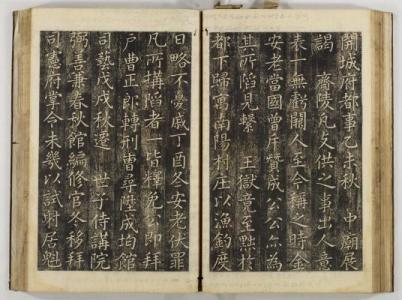 開城府都事乙未秋 中廟展
謁 齊陵凡支供之事出人意
表一無虧闕人至今稱之時金
安老當國曾斥贊成公公亦為
其所陷見繫 王獄竟至黜於
都下歸寓南陽村庄以漁釣度
日略不憂戚丁酉冬安老伏罪
凡所搆陷者一皆釋免公即拜
戶曹正郎轉刑曹尋陞成均館
司藝戊戌秋遷 世子侍講院
弼善兼春秋館編修官冬移拜
司憲府掌令未幾以試射居魁